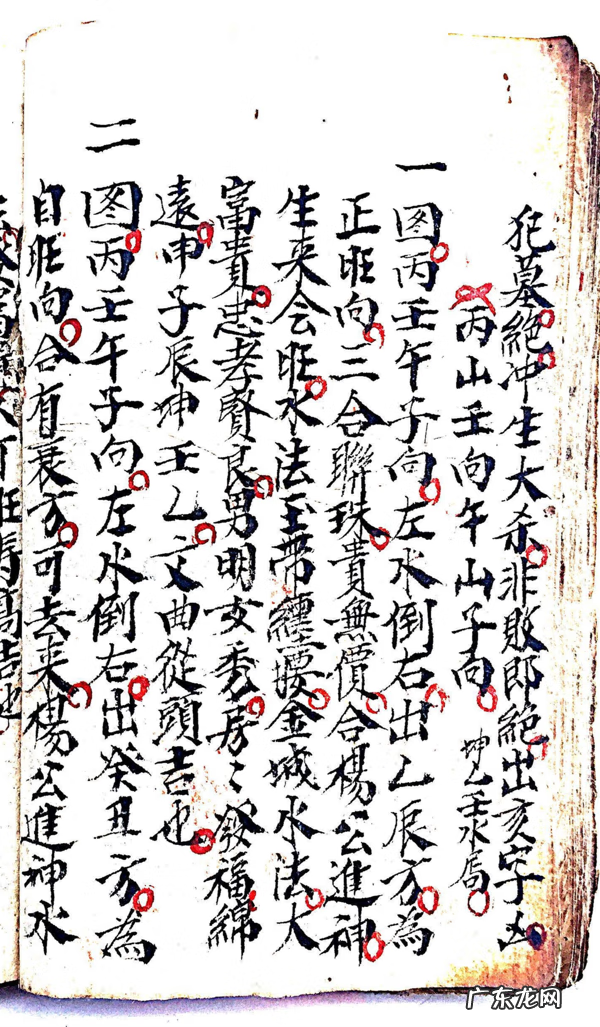 犯墓絕冲生大杀非敗即絕出亥字凶
丙山壬向午山子向 坤乙壬水局
一图丙壬午子向左水倒右出乙辰方為
正旺向三合聯珠貴無價合楊公進神
生来会旺水法玉帶纏腰金城水法大
富貴忠孝賢良男明女秀房〻發福綿
遠申子辰坤壬乙文曲從頭吉也
二图丙壬午子向左水倒右出癸丑方為
自旺向合有衰方可去来楊公進神水
广东龙网